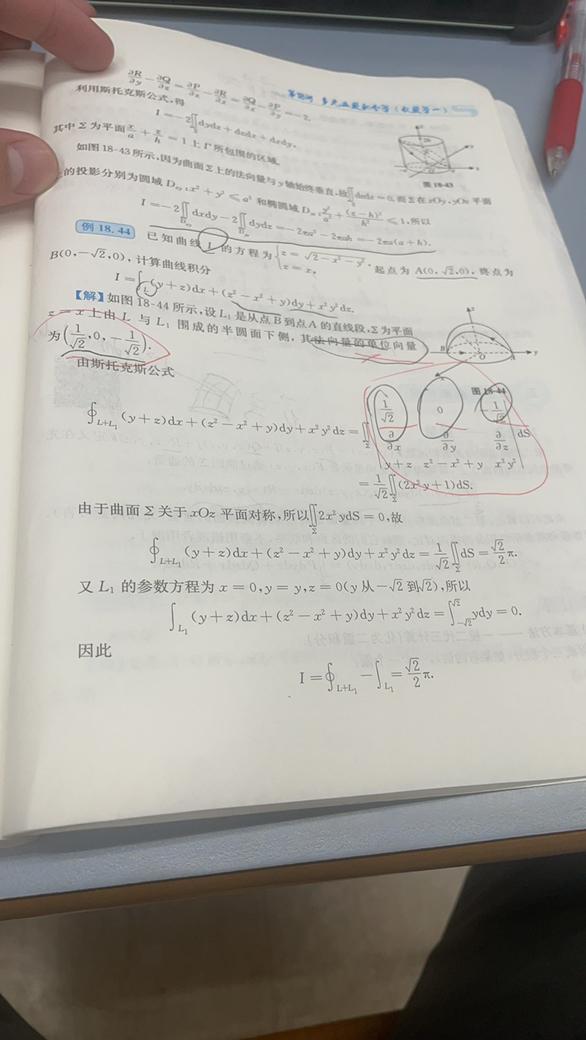 第18讲 多元函数积分学(仅数学一)
∂R/∂y − ∂Q/∂z = ∂P/∂z − ∂R/∂x = ∂Q/∂x − ∂P/∂y = −2,
利用斯托克斯公式,得
I = −2∬_Σ dydz + dzdx + dxdy,
其中 Σ 为平面 x/a + z/h = 1 上 Γ 所包围的区域.
如图 18-43 所示,因为曲面 Σ 上的法向量与 y 轴始终垂直,故∬_Σ dzdx = 0,而 Σ 在 xOy, yOz 平面
图 18-43
的投影分别为圆域 D_xy: x² + y² ≤ a² 和椭圆域 D_yz: y²/a² + (z−h)²/h² ≤ 1,所以
I = −2∬ dxdy − 2∬ dydz = −2πa² − 2πah = −2πa(a + h).
例 18.44 已知曲线 L 的方程为 { z = √(2 − x² − y²), z = x, 起点为 A(0, √2, 0), 终点为
B(0, −√2, 0), 计算曲线积分
I = ∫_L (y + z)dx + (z² − x² + y)dy + x²y²dz.
【解】如图 18-44 所示,设 L₁ 是从点 B 到点 A 的直线段,Σ 为平面
z = x 上由 L 与 L₁ 围成的半圆面下侧, 其法向量的单位向量
为 (1/√2, 0, −1/√2).
B O A y z
图 18-44
由斯托克斯公式
∮_{L+L₁} (y + z)dx + (z² − x² + y)dy + x²y²dz = ∬_Σ | 1/√2 0 −1/√2 ; ∂/∂x ∂/∂y ∂/∂z ; y + z z² − x² + y x²y² | dS
= 1/√2 ∬_Σ (2x²y + 1)dS.
由于曲面 Σ 关于 xOz 平面对称,所以∬_Σ 2x²ydS = 0,故
∮_{L+L₁} (y + z)dx + (z² − x² + y)dy + x²y²dz = 1/√2 ∬_Σ dS = √2/2 π.
又 L₁ 的参数方程为 x = 0, y = y, z = 0(y 从 −√2 到√2),所以
∫_{L₁} (y + z)dx + (z² − x² + y)dy + x²y²dz = ∫_{−√2}^{√2} ydy = 0.
因此
I = ∮_{L+L₁} − ∫_{L₁} = √2/2 π.